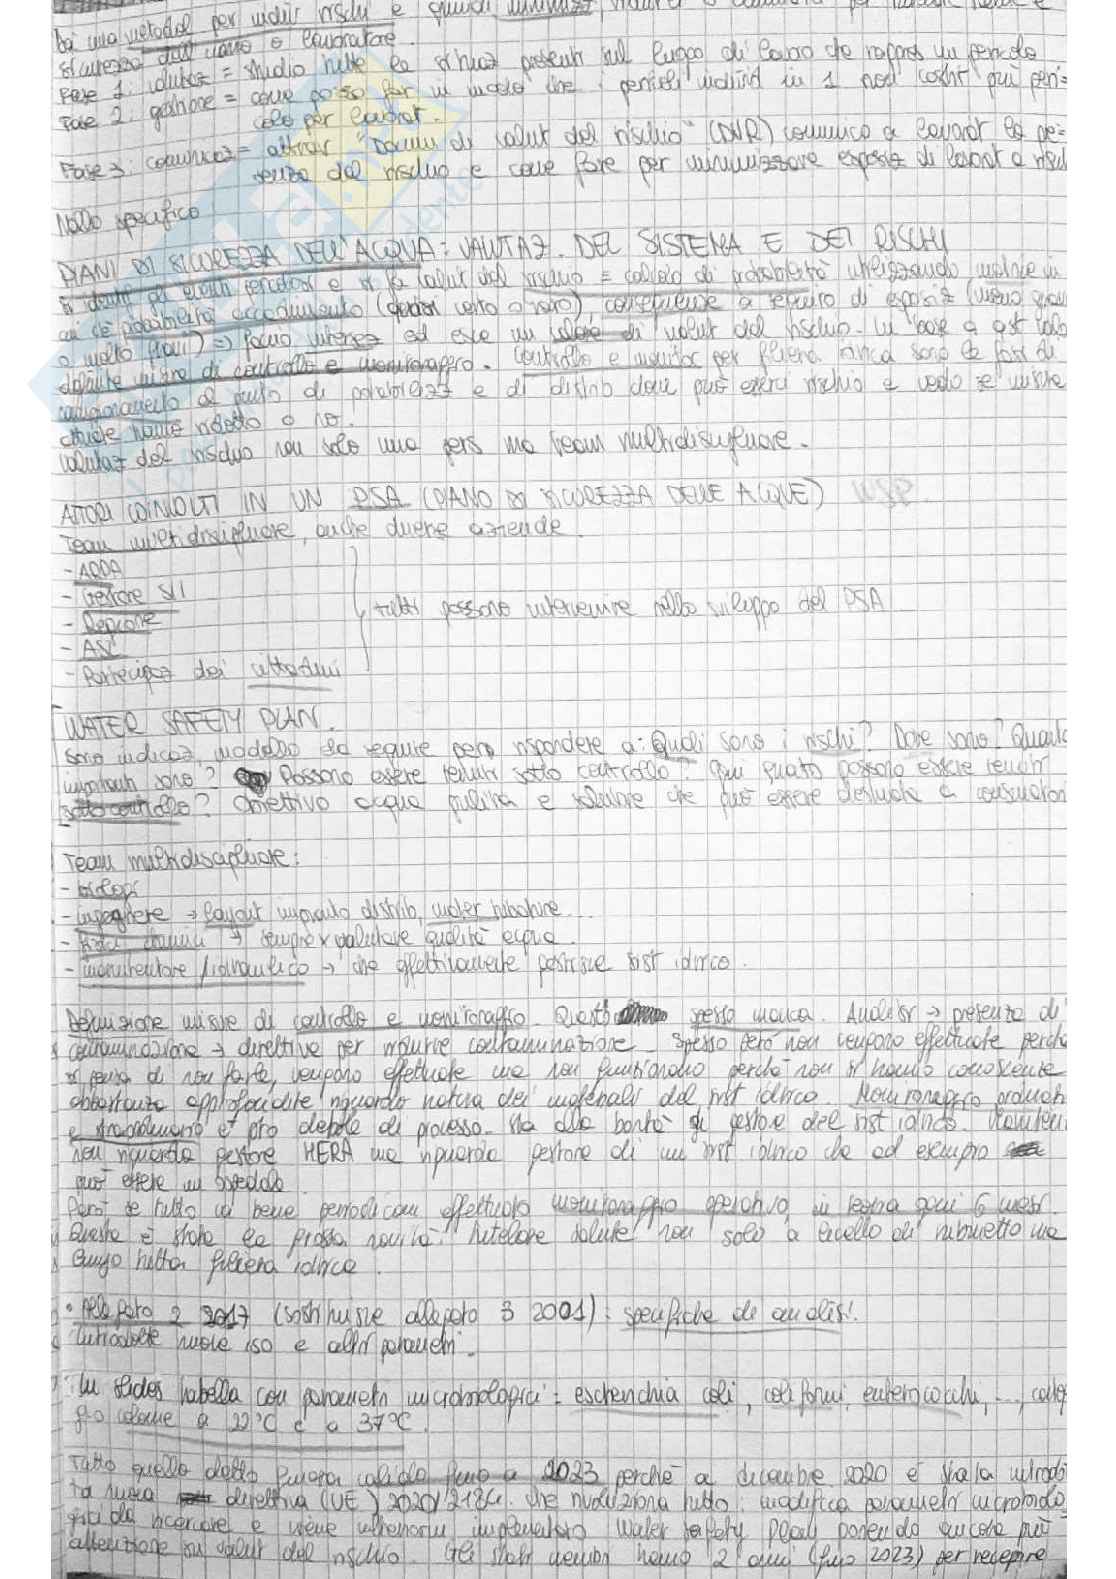 Dà una metodol per indiv rischi e quindi minimizz
sicurezza dell'uomo o lavoratore.
Fase 1: valutaz = studio tutte le sthuaz presenti sul luogo di lavoro che rappres un pericolo
Fase 2: gestione = come posso far in modo che i pericoli individ in 1 non costit più peri=
colo per lavorat.
Fase 3: comunicaz = attrav "Docum di valut del rischio" (DVR) comunico a lavorat la pe=
senza del rischio e come fare per minimizzare esposiz di lavorat a risch
Nello specifico
PIANI DI SICUREZZA DELL'ACQUA: VALUTAZ. DEL SISTEMA E DEI RISCHI
si identif gli eventi pericolosi e si fa valut del rischio = calcolo di probabilità utilizzando matrice in
cui c'è probabilità accadimento (quasi certo o raro), conseguenze a seguito di esposiz (meno gravi
o molto gravi) => faccio intersez ed esce un valore di valut del rischio. In base a qst valo
definite misure di controllo e monitoraggio. Controllo e monitor per filiera idrica sono le fasi di
campionamento al punto di potabilizz e di distrib dove può esserci rischio e vedo se misure
attuate hanno ridotto o no.
Valutaz del rischio non solo una pers ma team multidisciplinare.
ATTORI COINVOLTI IN UN PSA (PIANO DI SICUREZZA DELLE ACQUE) WSP.
Team multidisciplinare, anche diverse aziende.
- Gestore SII
- Regione
- ASL
- Partecipaz dei cittadini
tutti possono intervenire nello sviluppo del PSA
WATER SAFETY PLAN.
Sono indicaz, modello da seguire per rispondere a: Quali sono i rischi? Dove sono? Quanto
importanti sono? Possono essere tenuti sotto controllo? Qui quato possono essere tenuti
sotto controllo? Obiettivo acqua pulita e salubre che può essere destinata a consumazion
Team multidisciplinare:
- biologi
- ingegnere → layout impianto distrib, water machine
→ sempre x valutare qualità acqua.
- manutentore / idraulico → che effettivamente gestisce sist idrico.
Definizione misure di controllo e monitoraggio. Questo spesso manca. Analisi → presenza di
contaminazione → direttive per ridurre contaminazione. Spesso però non vengono effettuate perchè
si pensa di non farle, vengono effettuate ma non funzionano perchè non si hanno conoscenze
abbastanza approfondite riguardo natura dei materiali del sist idrico. Monitoraggio ordinario
e straordinario è pto debole di processo. Sta alla bontà di gestore del sist idrico.
non riguarda gestore HERA ma riguarda gestore di un sist idrico che ad esempio
può essere un ospedale.
Però se tutto va bene periodicam effettuato monitoraggio operativo in teoria ogni 6 mesi.
Questa è stata la grossa novità. Tutelare salute non solo a livello di rubinetto ma
lungo tutta filiera idrica.
• Allegato 2 2017 (sostituisce allegato 3 2001): specifiche di analisi.
Introdotte nuove iso e altri parametri.
In slides tabella con parametri microbiologici: escherichia coli, coliformi, enterococchi, ..., conteg
gio colonie a 22°C e a 37°C.
Tutto quello detto finora valido fino a 2023 perchè a dicembre 2020 è stata introdot
ta nuova direttiva (UE) 2020/2184. che rivoluziona tutto: modifica parametri microbiolo
gici da ricercare e viene ulteriorm implementato Water Safety Plan ponendo ancora più
attenzione su valut del rischio. Gli stati membri hanno 2 anni (fino 2023) per recepire